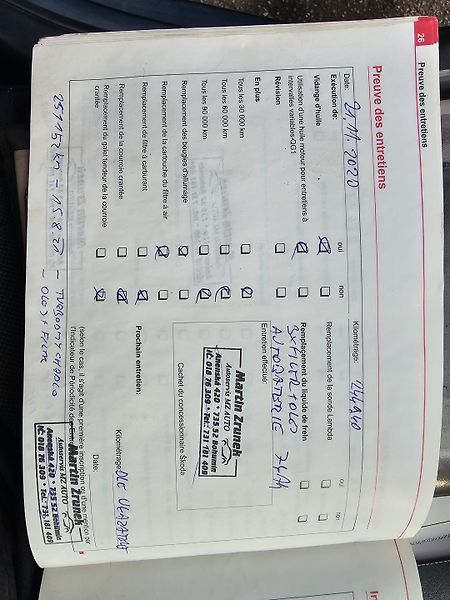 26
Preuve des entretiens
Preuve des entretiens
Date: 21.11.2020
Kilométrage:
Exécution de:
oui
non
Vidange d'huile
Utilisation d'une huile moteur pour entretiens à
intervalles variables-QG1
Révision
En plus
Tous les 30 000 km
Tous les 60 000 km
Tous les 90 000 km
Remplacement des bougies d'allumage
Remplacement de la cartouche du filtre à air
Remplacement du filtre à carburant
Remplacement de la courroie crantée
Remplacement du galet tendeur de la courroie
crantée
oui
non
Remplacement de la sonde Lambda
Remplacement du liquide de frein
Entretien effectué:
Martin Zrunek
Autoservis MZ AUTO
Anenská 420 * 735 52 Bohumín
IČ: 018 76 309 * Tel.: 731 181 409
Cachet du concessionnaire Škoda
Prochain entretien:
Kilométrage:
Date:
(selon le cas, il s'agit d'une première inscription ou d'une mention par
l'Indicateur de Périodicité des
Martin Zrunek
Autoservis MZ AUTO
Anenská 420 * 735 52 Bohumín
IČ: 018 76 309 * Tel.: 731 181 409